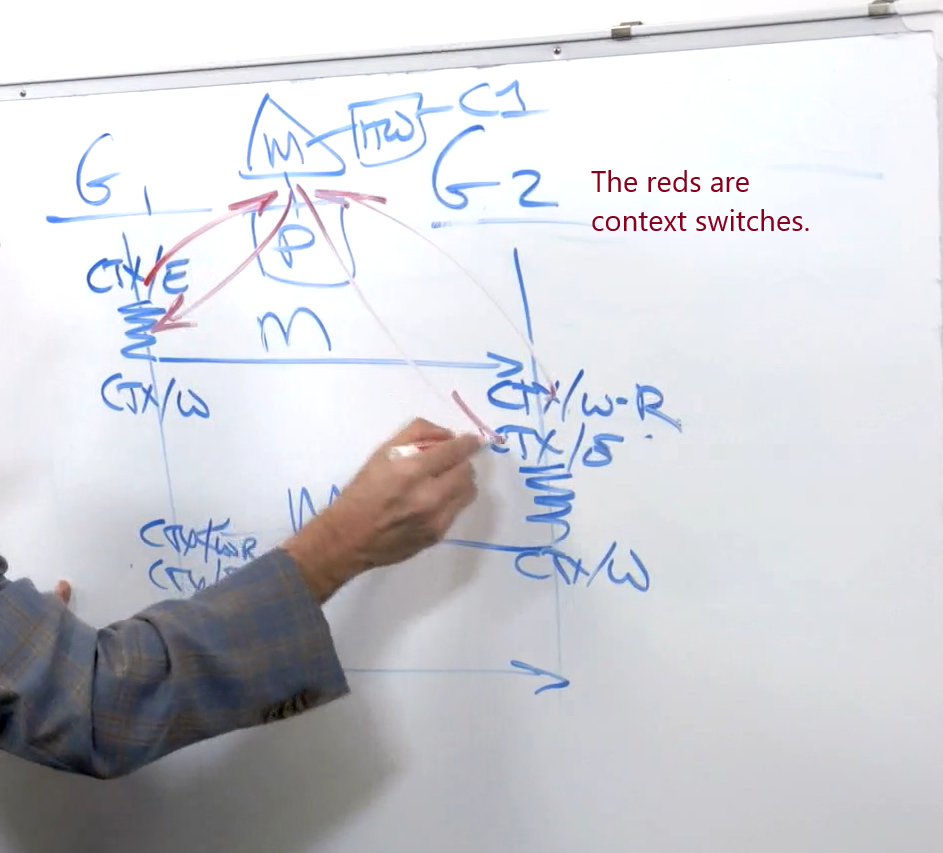 G1
M
HW
C1
G2
The reds are
context switches.
P
CTX/E
M
CTX/W
CTX/W-R
CTX/E
CTX/W
CTX/WR